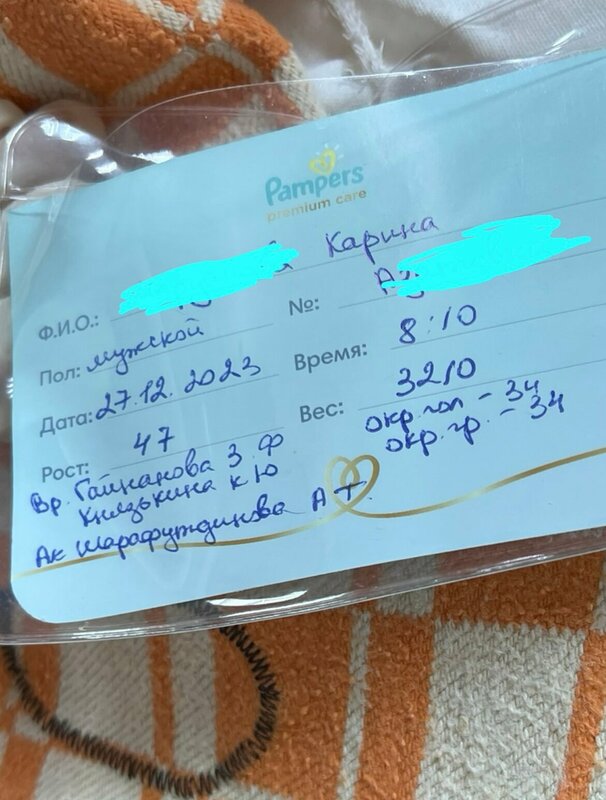 Pampers
premium care
Ф.И.О.: Карина
Пол: мужской №:
Дата: 27.12.2023 Время: 8:10
Рост: 47 Вес: 3210
окр. гол - 34
окр. гр. - 34
Вр. Гайнанова З. Ф
Князькина К Ю
Ак Шарафутдинова А Т.